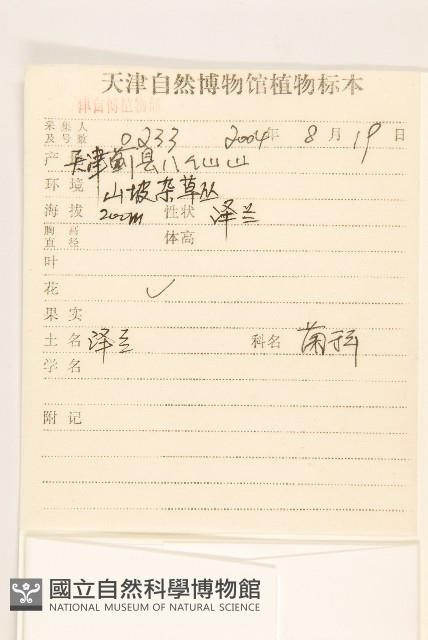 天津自然博物馆植物标本
采集人
及号数 0233 2004年 8月 19日
产 天津蓟县八仙山
环境 山坡杂草丛
海拔 200m 性状 泽兰
胸高
直径 体高
叶
花 ✓
果实
土名 泽兰 科名 菊科
学名
附记
國立自然科學博物館
NATIONAL MUSEUM OF NATURAL SCIENCE